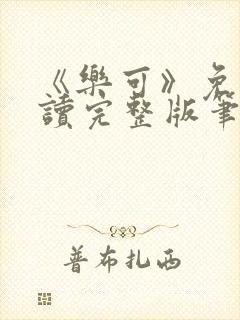 《樂可》免
讀完整版筆
普布扎西